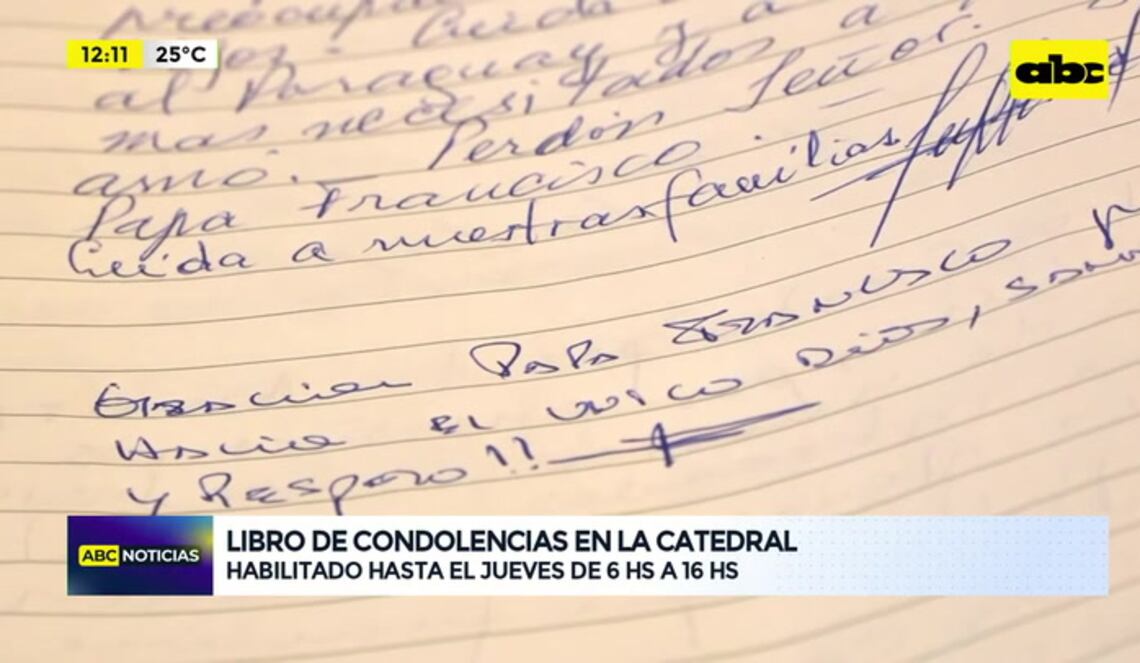 12:11 25°C
abc
al Paraguay y a
mas necesitados a
amó. Perdón Señor.
Papa Francisco
Cuida a nuestras familias
Gracias PAPA FRANCISCO
HACIA EL UNICO DIOS,
Y RESPETO!!
ABC NOTICIAS
LIBRO DE CONDOLENCIAS EN LA CATEDRAL
HABILITADO HASTA EL JUEVES DE 6 HS A 16 HS